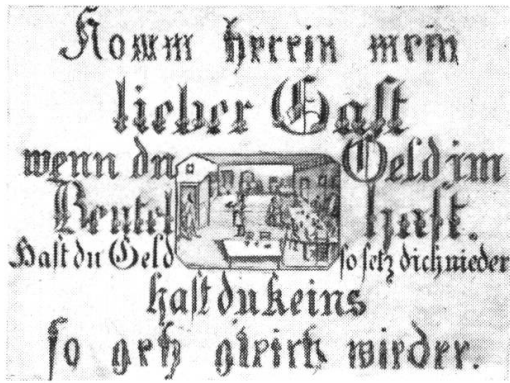 Komm herein mein
lieber Gast
wenn du Geld im
Beutel hast.
Hast du Geld so setz dich nieder
hast du keins
so geh gleich wieder.